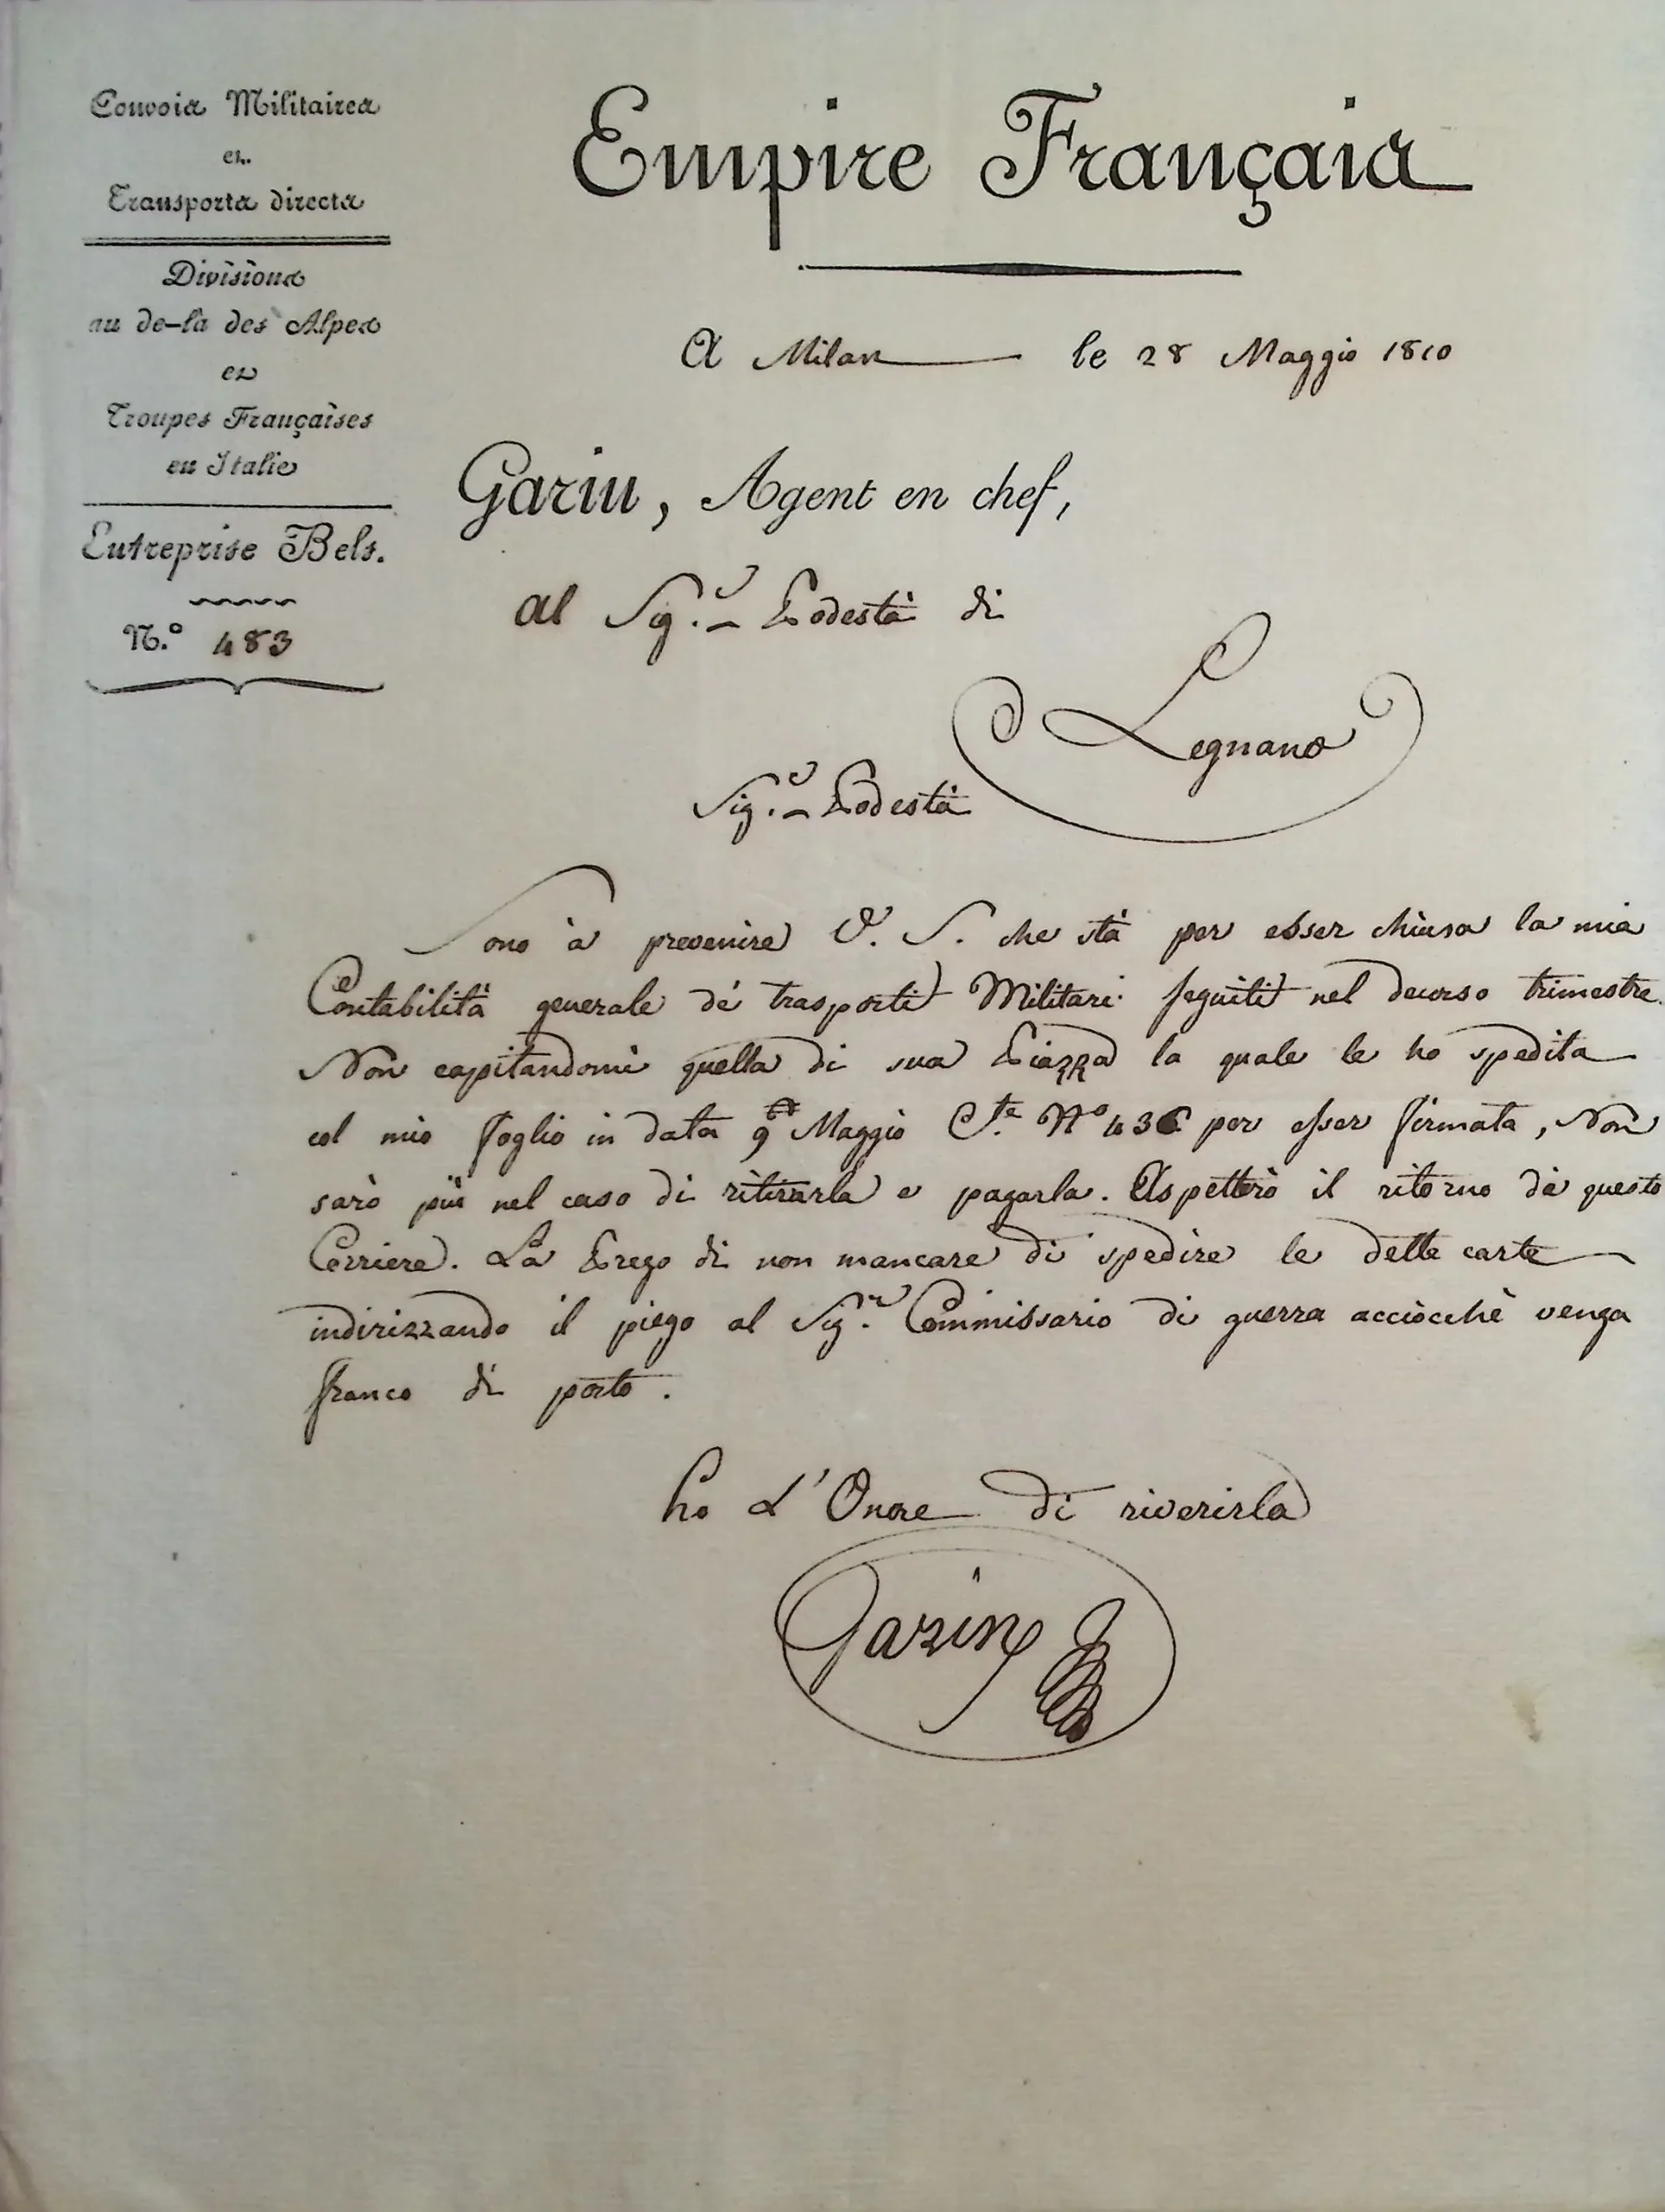 Convois Militaires
et
Transports directs
Divisions
au de-là des Alpes
et
Troupes Françaises
en Italie
Entreprise Bels.
N.º 483
Empire Français
A Milan le 28 Maggio 1810
Garin, Agent en chef,
Al Sig.r Podestà di
Legnano
Sig.r Podestà
Sono à prevenire V. S. che stà per esser chiusa la mia
Contabilità generale dé trasporti Militari seguiti nel decorso trimestre.
Non capitandomi quella di sua Piazza la quale le ho spedita
col mio foglio in data 9 Maggio C.te Nº 436 per esser firmata, Non
sarò più nel caso di ritirarla e pagarla. Aspetterò il ritorno di questo
Corriere. La Prego di non mancare di spedire le dette carte
indirizzando il piego al Sig.r Commissario di guerra acciòcchè venga
franco di porto.
ho L'Onore di riverirla
Garin